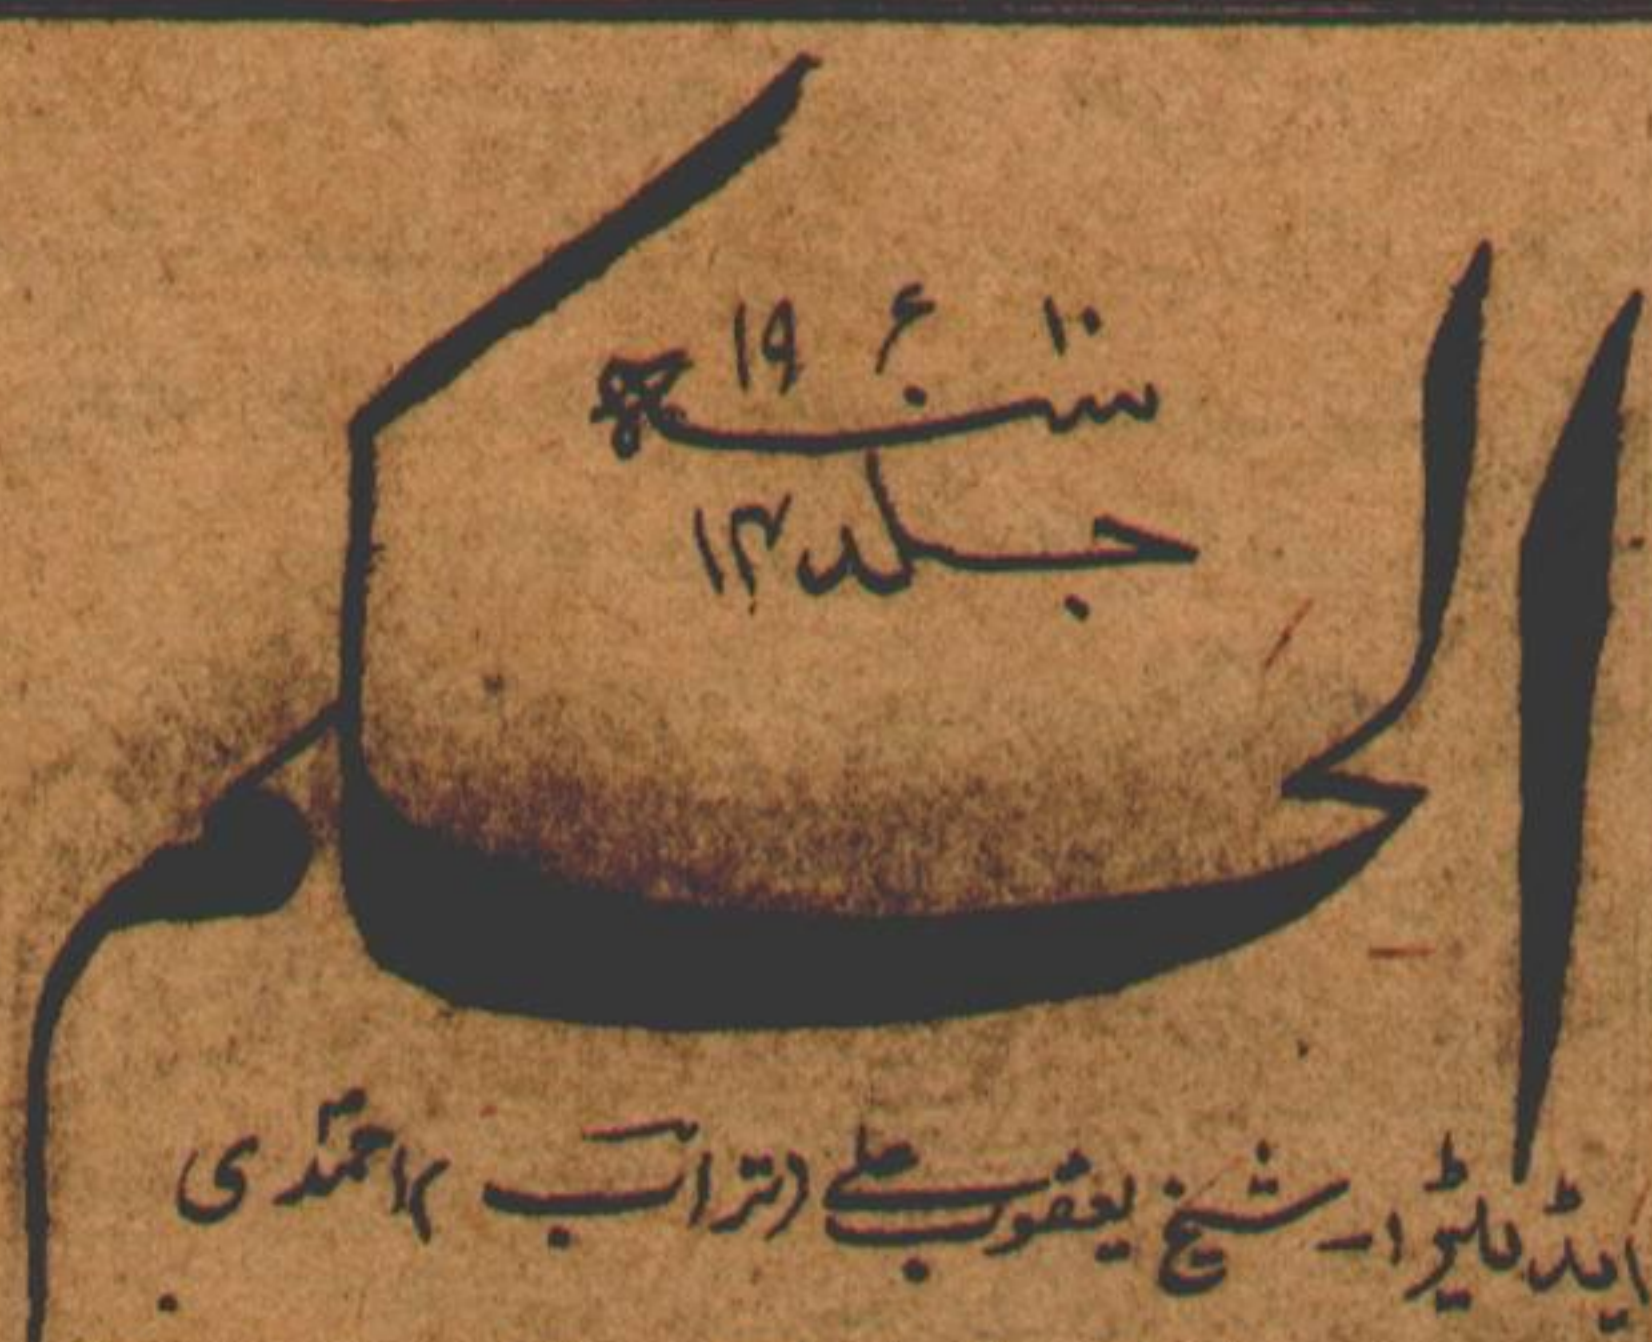 الحکم
سنہ ۱۹۱۰ء
جلد ۱۴
ایڈیٹر :۔ شیخ یعقوب علی (تراب) احمدی